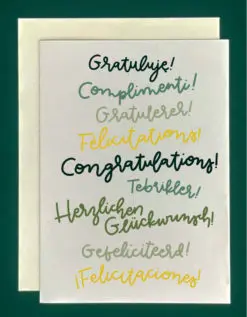 Gratuluję!
Complimenti!
Gratulerer!
Félicitations!
Congratulations!
Tebrikler!
Herzlichen
Glückwunsch!
Gefeliciteerd!
¡Felicitaciones!